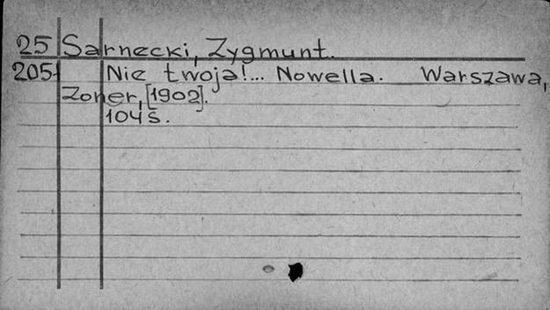 25 Sarnecki, Zygmunt.
205 Nie twoja!... Nowella. Warszawa,
Zoner, [1902].
104 s.